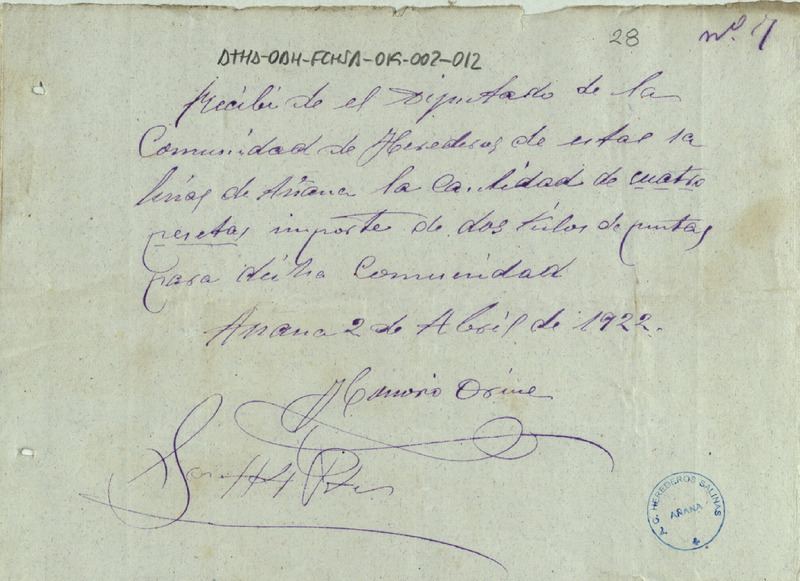 28
nº. 7
ATHA-DAH-FCHSA-019-002-012
Recibi de el Diputado de la
Comunidad de Herederos de estas sa
linas de Añana la Cantidad de cuatro
pesetas importe de dos kilos de puntas
para dicha Comunidad
Añana 2 de Abril de 1922.
Honorio
Son 4 Ptas
G. HEREDEROS SALINAS
AÑANA